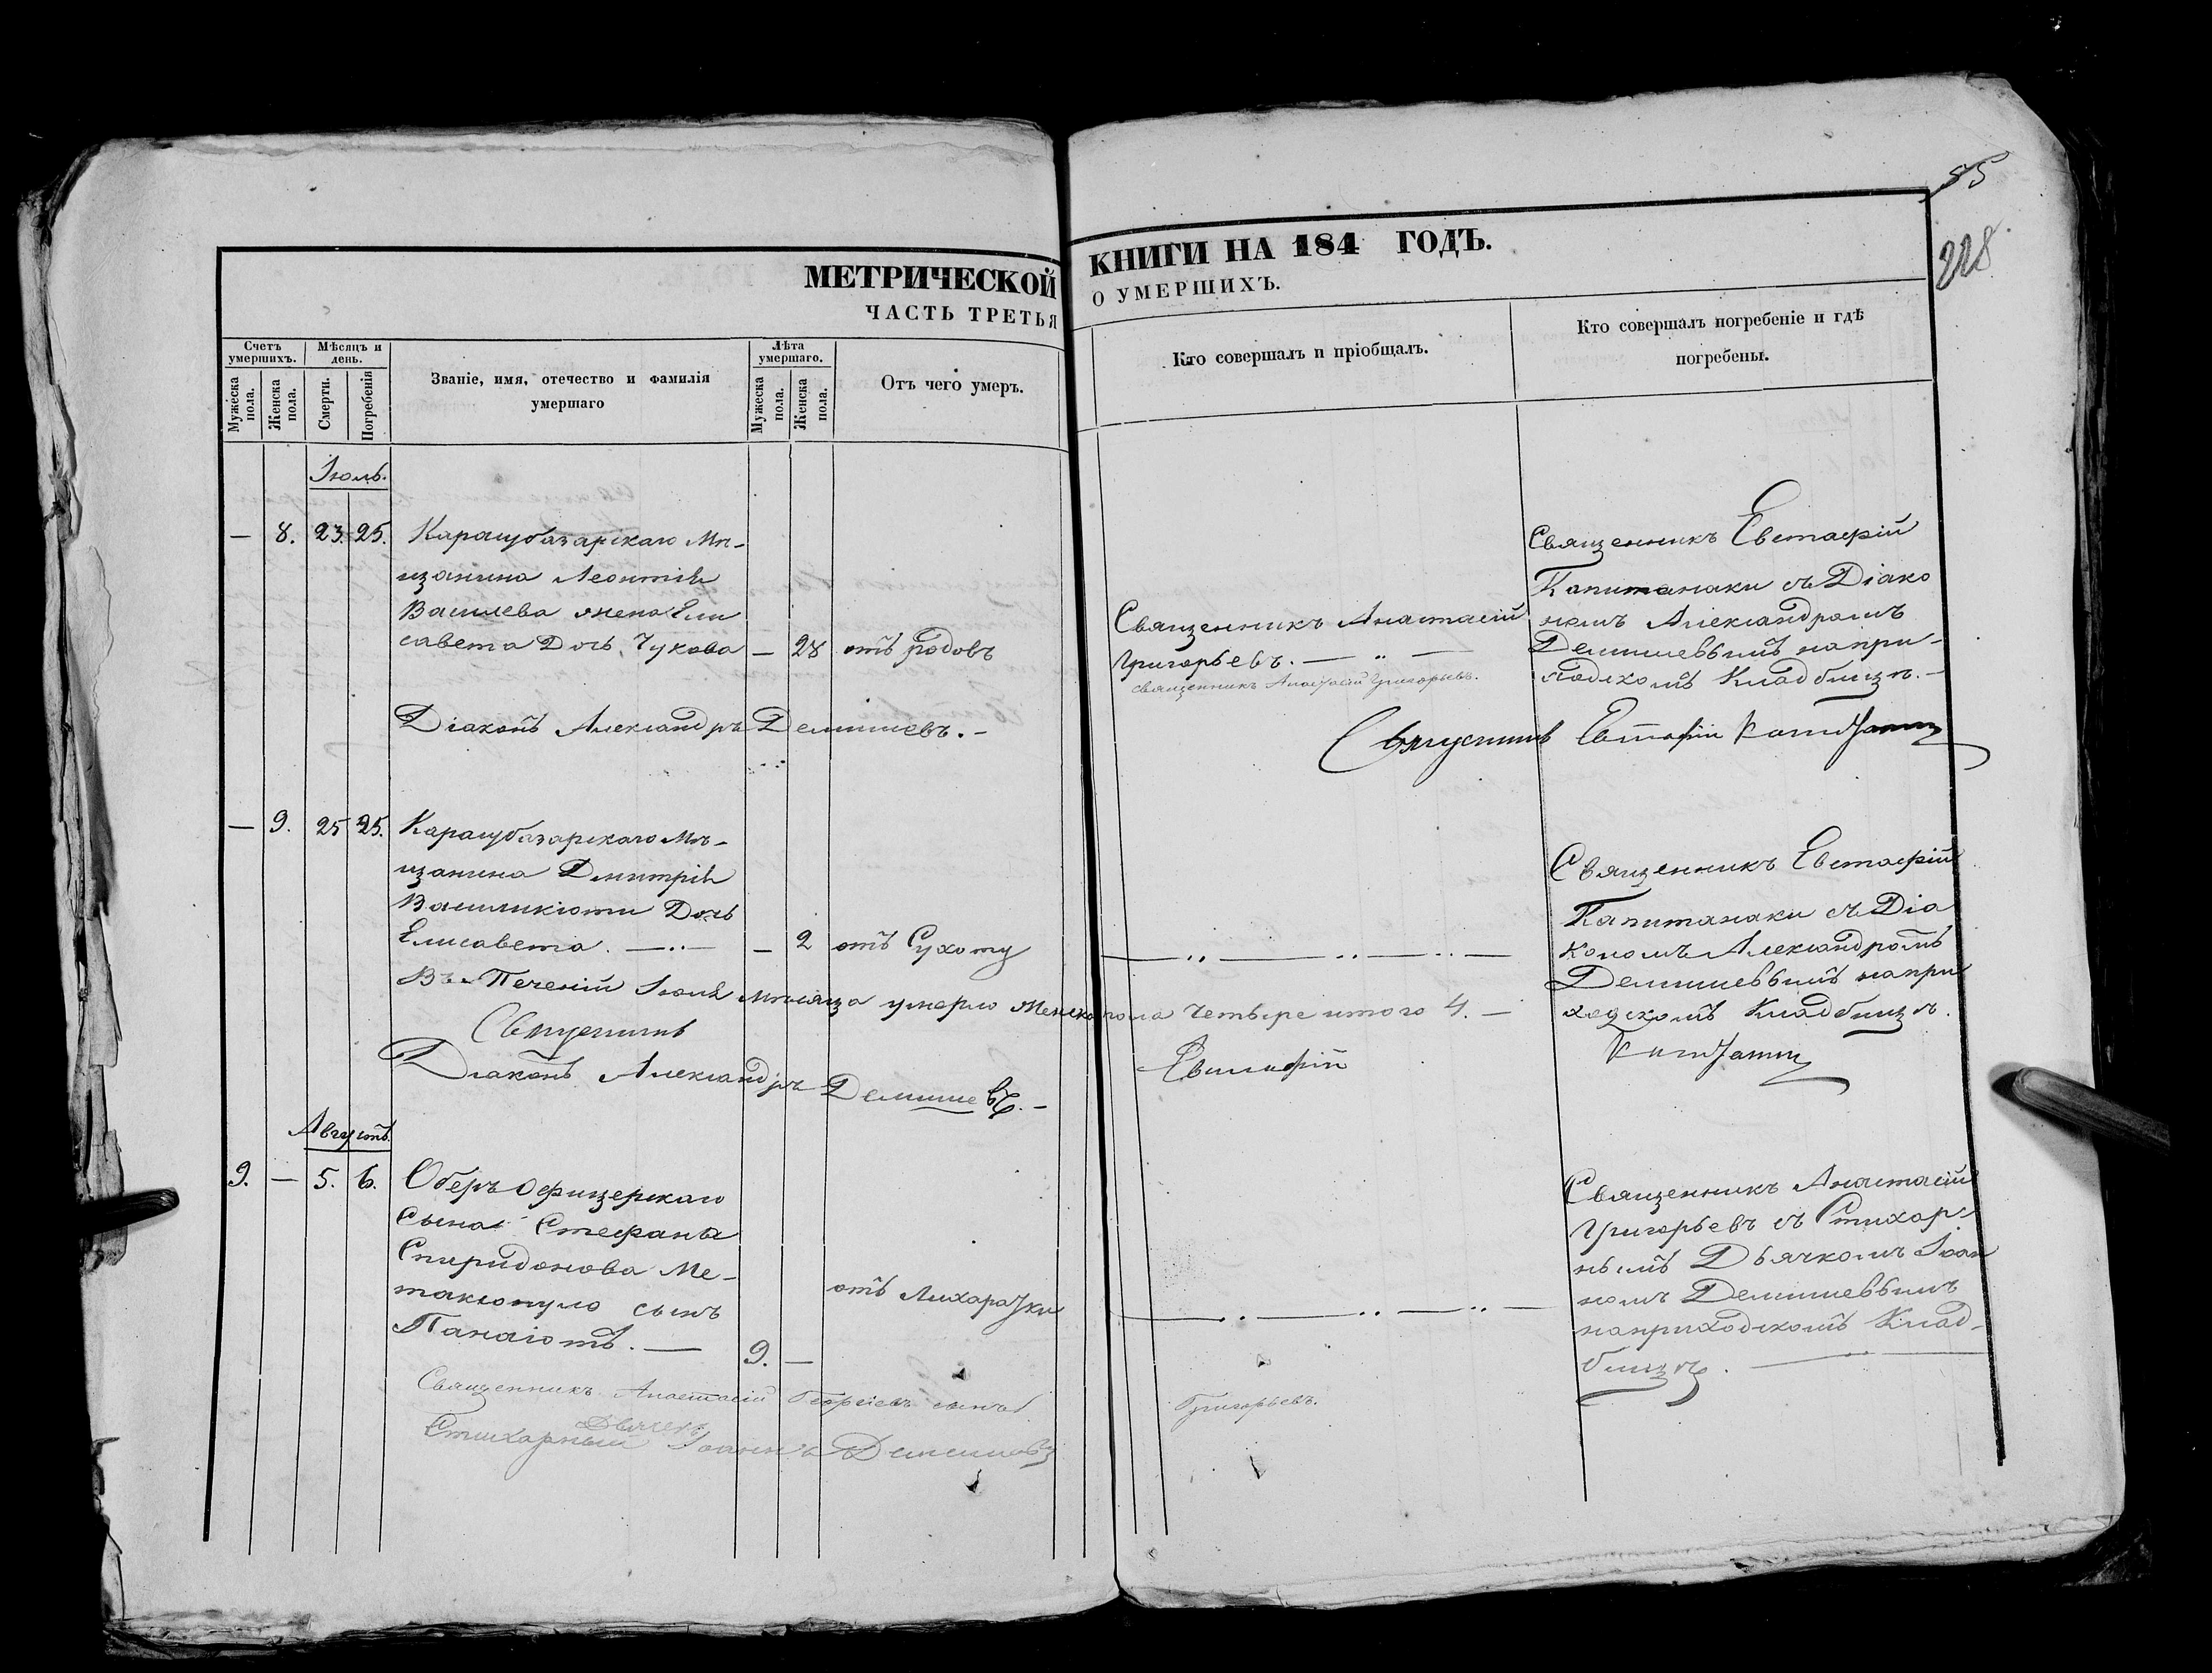 85
228
МЕТРИЧЕСКОЙ КНИГИ НА 184 ГОДЪ.
ЧАСТЬ ТРЕТЬЯ О УМЕРШИХЪ.
Счетъ умершихъ.
Мужеска пола.
Женска пола.
Мѣсяцъ и день.
Смерти.
Погребенія
Званіе, имя, отечество и фамилія
умершаго
Лѣта умершаго.
Мужеска пола.
Женска пола.
Отъ чего умеръ.
Кто совершалъ и пріобщалъ.
Кто совершалъ погребеніе и гдѣ
погребены.
Іюль.
— 8. 23. 25.
Карасубазарскаго Мѣ-
щанина Леонтія
Васильева жена Ели
савета Дочь Чукова — 28 отъ родовъ
Священникъ Анастасій
Григорьевъ. — „ —
священникъ Анастасій Григорьевъ.
Священникъ Евстафій
Капитанаки съ Діако
номъ Александромъ
Демишевымъ на при-
ходскомъ Кладбищѣ. —
Діаконъ Александръ Демишевъ. –
Евстафій
— 9. 25 25.
Карасубазарскаго Мѣ-
щанина Дмитрія
Василикіоти Дочь
Елисавета. —..— — 2 отъ Сухоту
Священникъ Евстафій
Капитанаки съ Діа
кономъ Александромъ
Демишевымъ на при
ходскомъ Кладбищѣ.
Въ Теченій Іюля мѣсяца умерло Женска пола Четыре итого 4. —
Евстафій
Діаконъ Александръ Демишевъ. –
Августъ.
9. — 5. 6.
Оберъ Офицерскаго
Сына Стефана
Спиридонова Ме-
таксопуло сынъ
Панаіотъ. — 9. — отъ Лихарадки
Священникъ Анастасій
Григорьевъ съ Стихар
нымъ Дьячкомъ Іоан
номъ Демишевымъ
на приходскомъ Клад-
бищѣ.
Священникъ Анастасій Григорьевъ.
Дьячекъ
Стихарный Іоаннъ Демишевъ